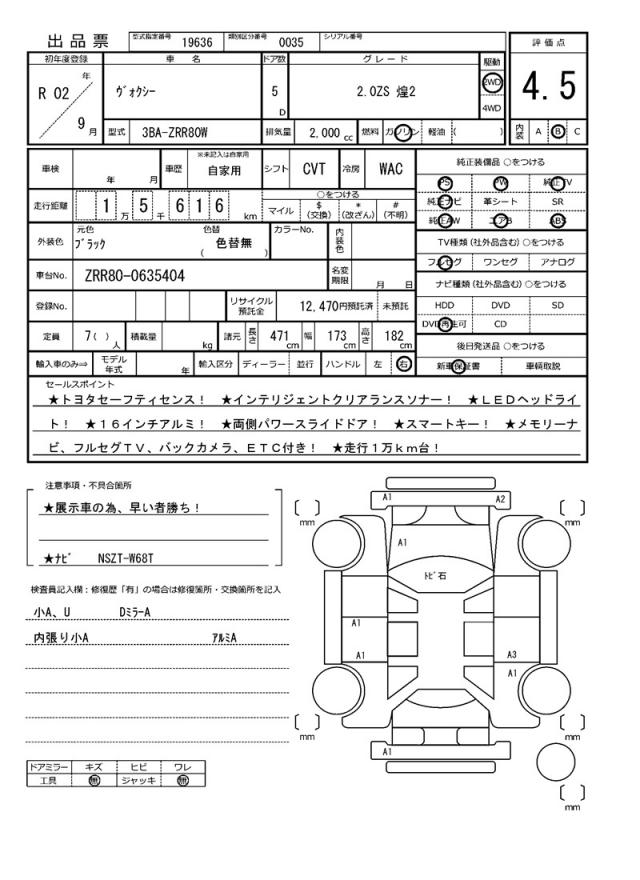 出品票 型式指定番号 19636 類別区分番号 0035 シリアル番号
評価点
初年度登録 車名 ドア数 グレード 駆動
R 02 年 9 月 ヴォクシー 5 D 2.0ZS 煌2 2WD 4WD
4.5
型式 3BA-ZRR80W 排気量 2,000 cc 燃料 ガソリン 軽油 ( )
内装 A B C
車検 年 月 車歴 ※未記入は自家用 自家用 シフト CVT 冷房 WAC
純正装備品 ○をつける
PS PW 純正TV
走行距離 1 万 5 千 6 1 6 km ○をつける マイル $ (交換) * (改ざん) # (不明)
純正ナビ 革シート SR
純正AW エアB ABS
外装色 元色 ブラック 色替 色替無 ( ) カラーNo. 内装色
TV種類(社外品含む) ○をつける
フルセグ ワンセグ アナログ
車台No. ZRR80-0635404 名変期限 月 日
ナビ種類(社外品含む) ○をつける
登録No. リサイクル預託金 12,470円預託済 未預託
HDD DVD SD
DVD再生可 CD
定員 7( ) 人 積載量 kg 諸元 長さ 471 cm 幅 173 cm 高さ 182 cm
後日発送品 ○をつける
輸入車のみ⇒ モデル年式 年 輸入区分 ディーラー 並行 ハンドル 左 右
新車保証書 車輌取説
セールスポイント
★トヨタセーフティセンス! ★インテリジェントクリアランスソナー! ★LEDヘッドライ
ト! ★16インチアルミ! ★両側パワースライドドア! ★スマートキー! ★メモリーナ
ビ、フルセグTV、バックカメラ、ETC付き! ★走行1万km台!
注意事項・不具合箇所
★展示車の為、早い者勝ち!
★ナビ NSZT-W68T
検査員記入欄:修復歴「有」の場合は修復箇所・交換箇所を記入
小A、U DミラーA
内張り小A アルミA
ドアミラー キズ ヒビ ワレ
工具 無 ジャッキ 無
A1 A2
mm mm
A1
トビ石
A1
A1 A3
A1
mm mm
A1
mm